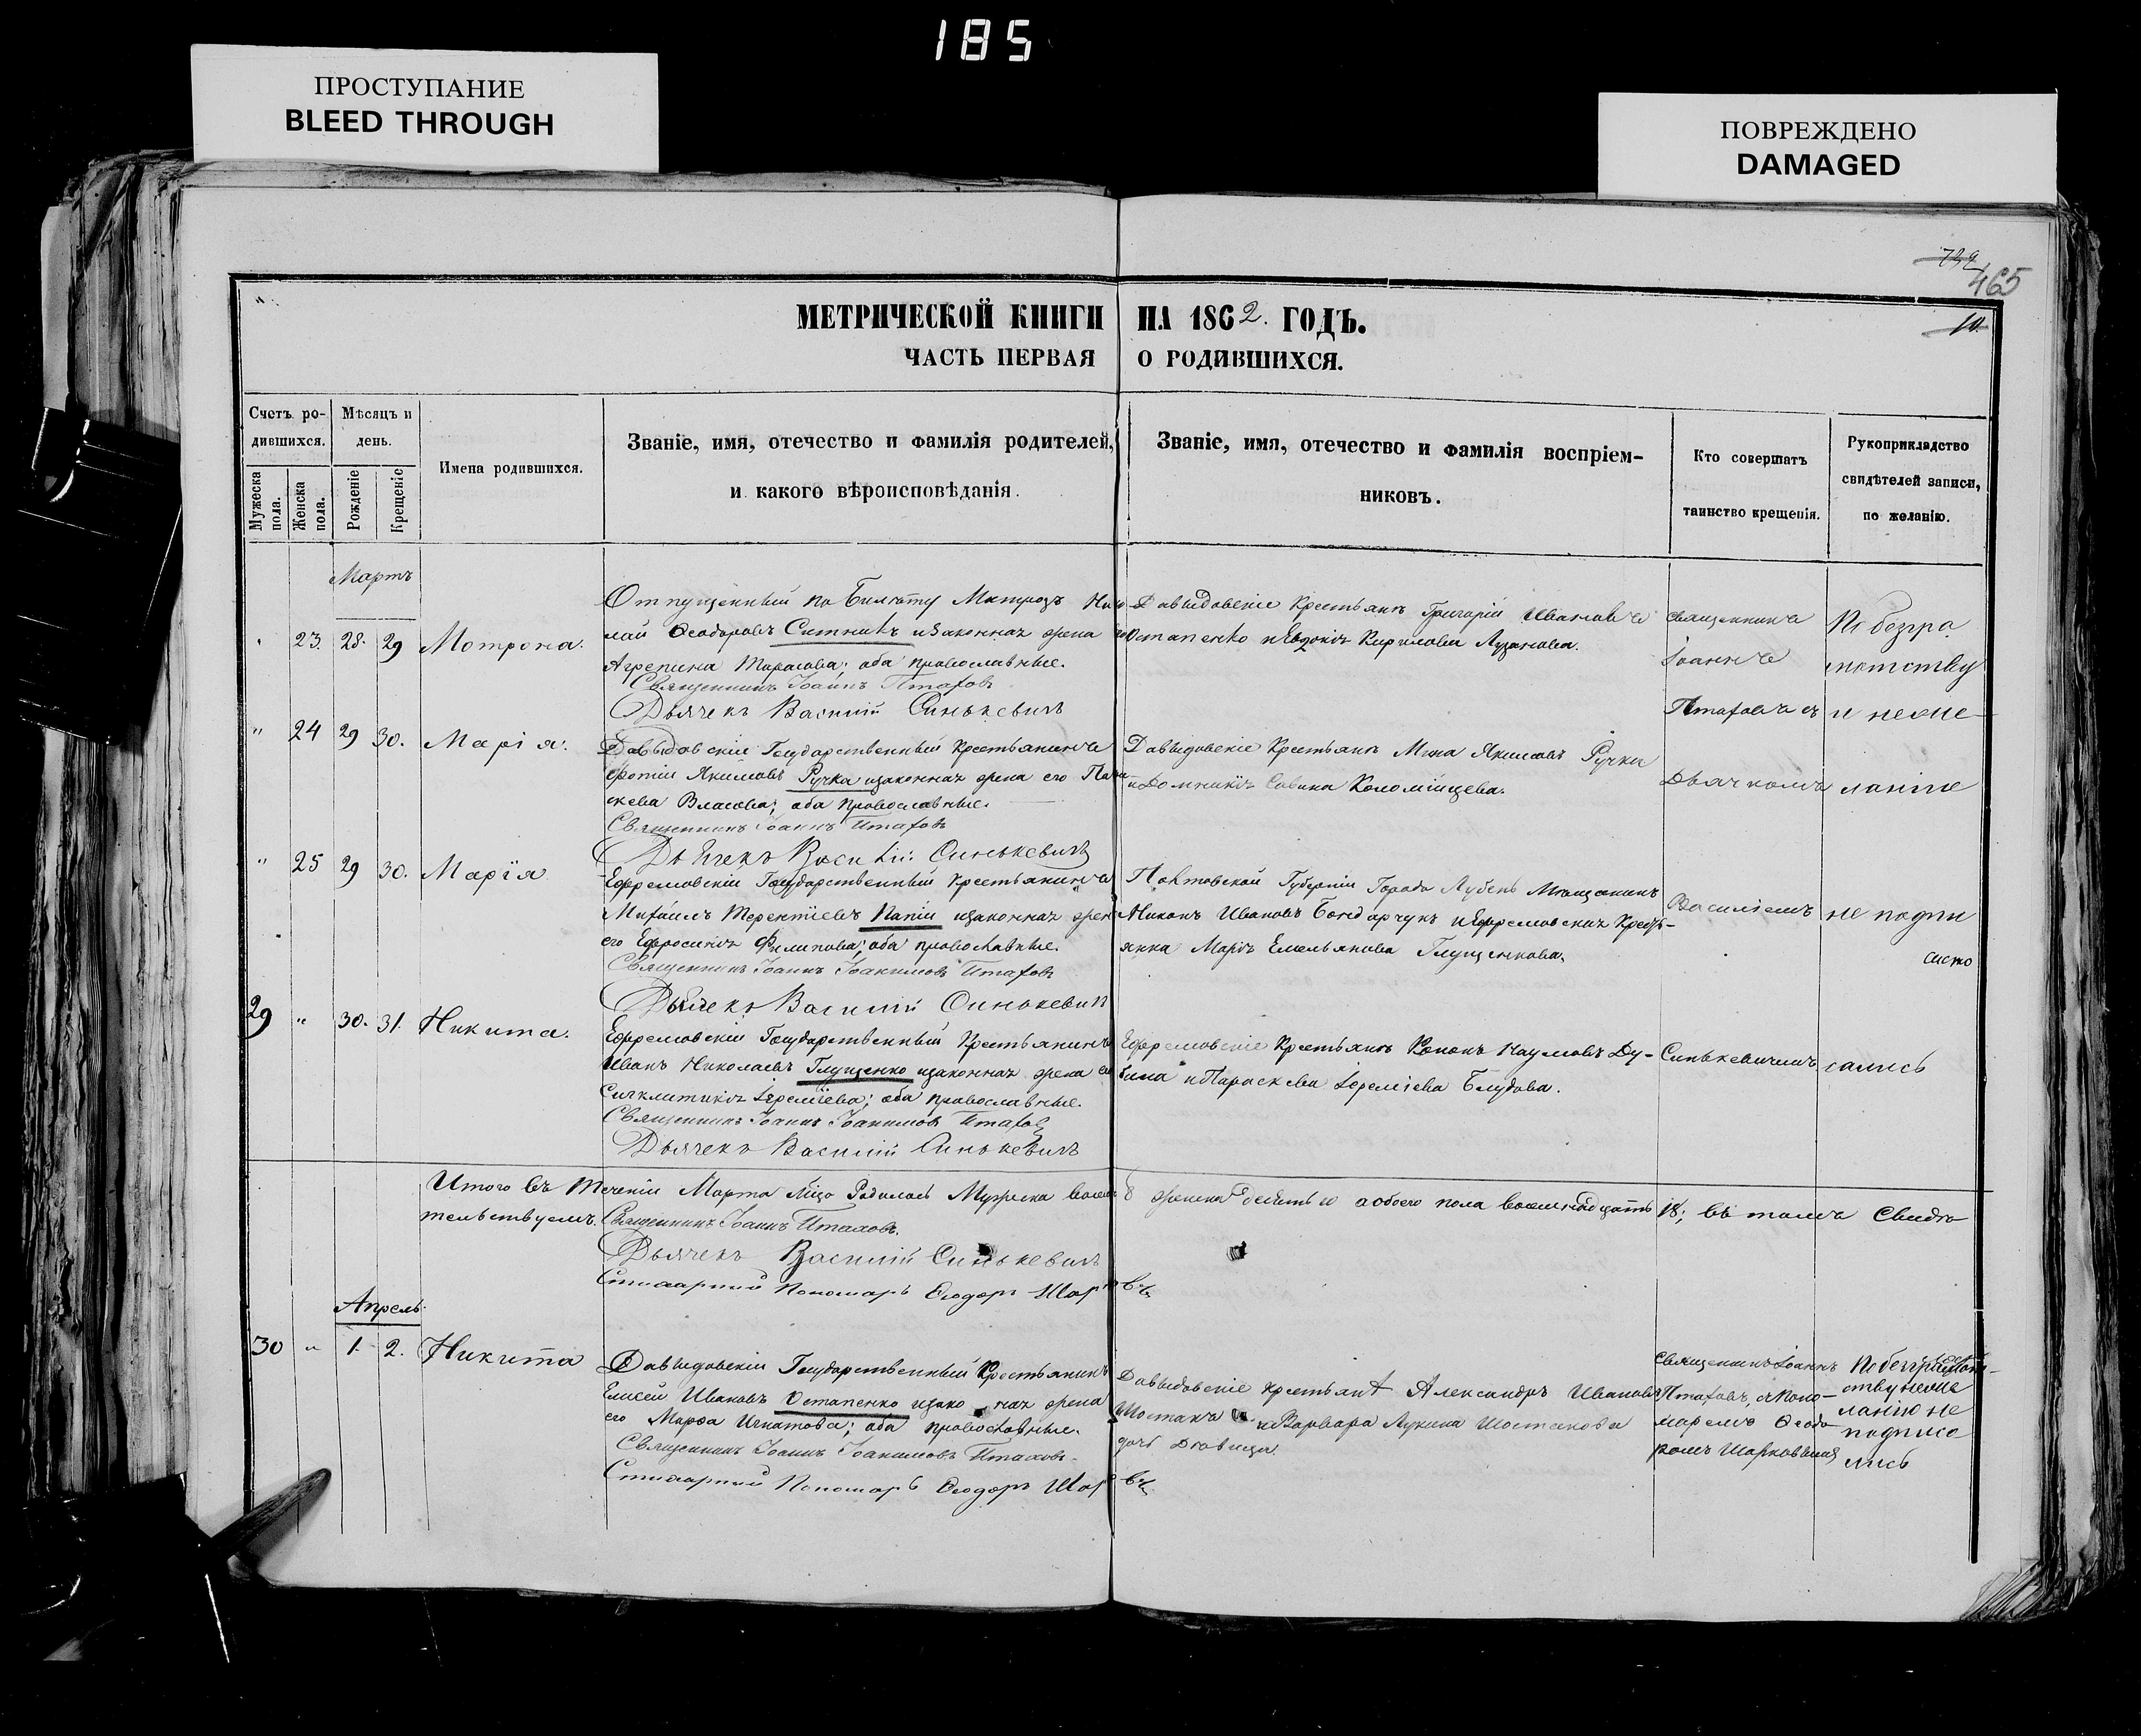 185
ПРОСТУПАНИЕ
BLEED THROUGH
ПОВРЕЖДЕНО
DAMAGED
739
465
10
МЕТРИЧЕСКОЙ КНИГИ НА 1862. ГОДЪ.
ЧАСТЬ ПЕРВАЯ О РОДИВШИХСЯ.
Счетъ ро-
дившихся.
Мужеска
пола.
Женска
пола.
Мѣсяцъ и
день.
Рожденіе
Крещеніе
Имена родившихся.
Званіе, имя, отечество и фамилія родителей,
и какого вѣроисповѣданія.
Званіе, имя, отечество и фамилія воспріем-
никовъ.
Кто совершатъ
таинство крещенія.
Рукоприкладство
свидѣтелей записи,
по желанію.
Мартъ
" 23. 28. 29 Мотрона.
Отпущенный по Билету Матрозъ Нико
лай Ѳеодоровъ Ситникъ изаконная жена его
Агрепина Тарасова; оба православные.
Священникъ Іоаннъ Птаховъ
Дьячекъ Василій Синькевичъ
Давыдовскіе Крестьяне Григорій Ивановъ
Остапенко иЕвдокія Кирилова Лузанова.
Священникъ
Іоаннъ
Птаховъ съ
Дьячкомъ
Василіемъ
Синькевичемъ
По безгра
мотству
и неже-
ланію
не подпи
сались
" 24 29 30. Марія.
Давыдовскій Государственный Крестьянинъ
Фотій Якимовъ Ручка изаконная жена его Пара
скева Власова; оба православные.
Священникъ Іоаннъ Птаховъ
Дьячекъ Василій Синькевичъ
Давыдовскіе Крестьяне Мина Якимовъ Ручка
иДомникія Савина Коломійцева.
" 25 29 30. Марія
Ефремовскій Государственный Крестьянинъ
Михаилъ Терентіевъ Папій изаконная жена
его Ефросинія Филипова; оба православные.
Священникъ Іоаннъ Іоакимовъ Птаховъ
Дьячекъ Василій Синькевич
Полтовской Губерніи Города Лубенъ Мещанинъ
Никонъ Ивановъ Бондарчукъ иЕфремовская Кресть-
янка Марія Емельянова Глущенкова.
29 " 30. 31. Никита.
Ефремовскій Государственный Крестьянинъ
Иванъ Николаевъ Глущенко изаконная жена его
Синклитикія Іереміева; оба православные.
Священникъ Іоаннъ Іоакимовъ Птаховъ
Дьячекъ Василій Синькевичъ
Ефремовскіе Крестьяне Кононъ Наумовъ Ду-
бина иПараскева Іереміева Блудова.
Итого въ Теченіи Марта мѣсо Родилось Мужеска восемь 8 женска десять 10 а обоего пола восемнадцать 18; въ томъ Свидѣ-
тельствуемъ. Священникъ Іоаннъ Птаховъ.
Дьячекъ Василій Синькевичъ
Стихарный Пономарь Ѳеодоръ
Апрель.
30 " 1. 2. Никита
Давыдовскій Государственный Крестьянинъ
Елисей Ивановъ Остапенко изаконная жена
его Марфа Игнатова; оба православные.
Священникъ Іоаннъ Іоакимовъ Птаховъ.
Стихарный Пономарь Ѳеодоръ
Давыдовскіе Крестьяне Александръ Ивановъ
Шостакъ иВарвара Лукина Шостакова
дочь Девица.
Священникъ Іоаннъ
Птаховъ, съ Поно-
маремъ Ѳеодо-
ромъ
По безграмот-
ству неже
ланію не
подписа
лись